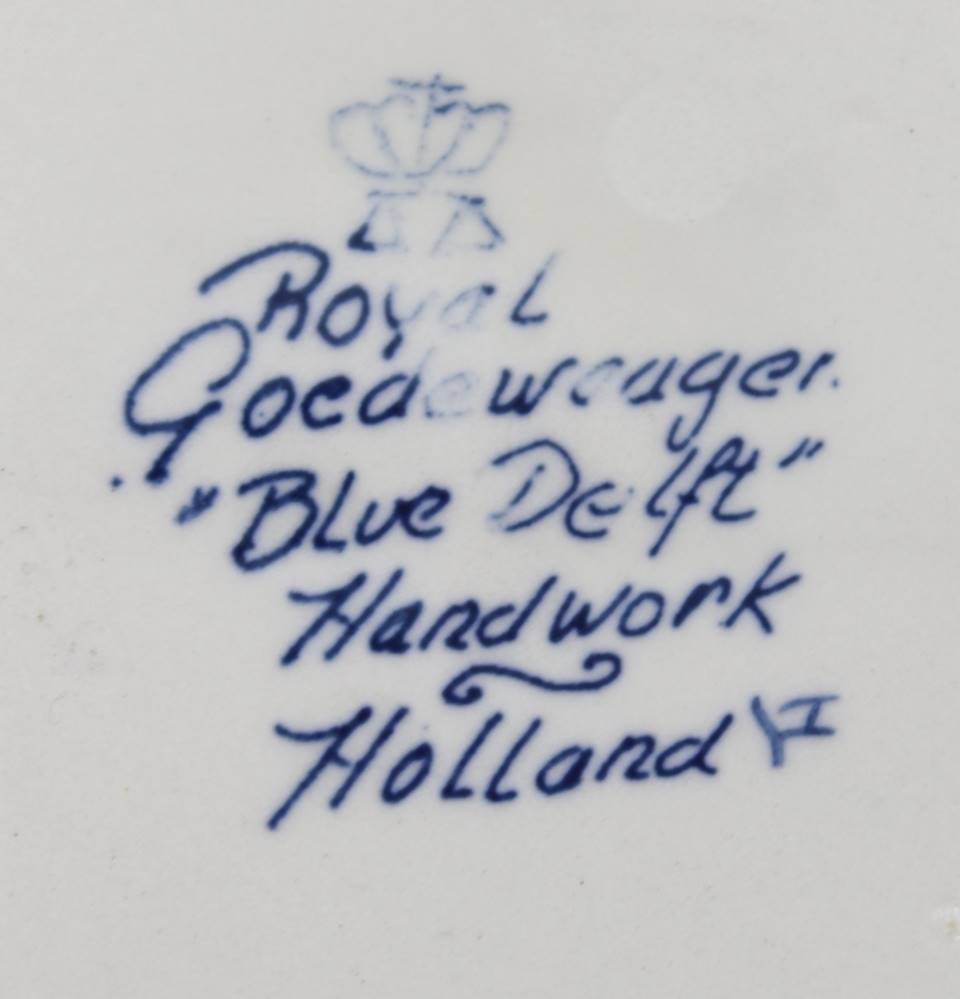 Royal
Goedeweager.
"Blue Delft"
Handwork
Holland